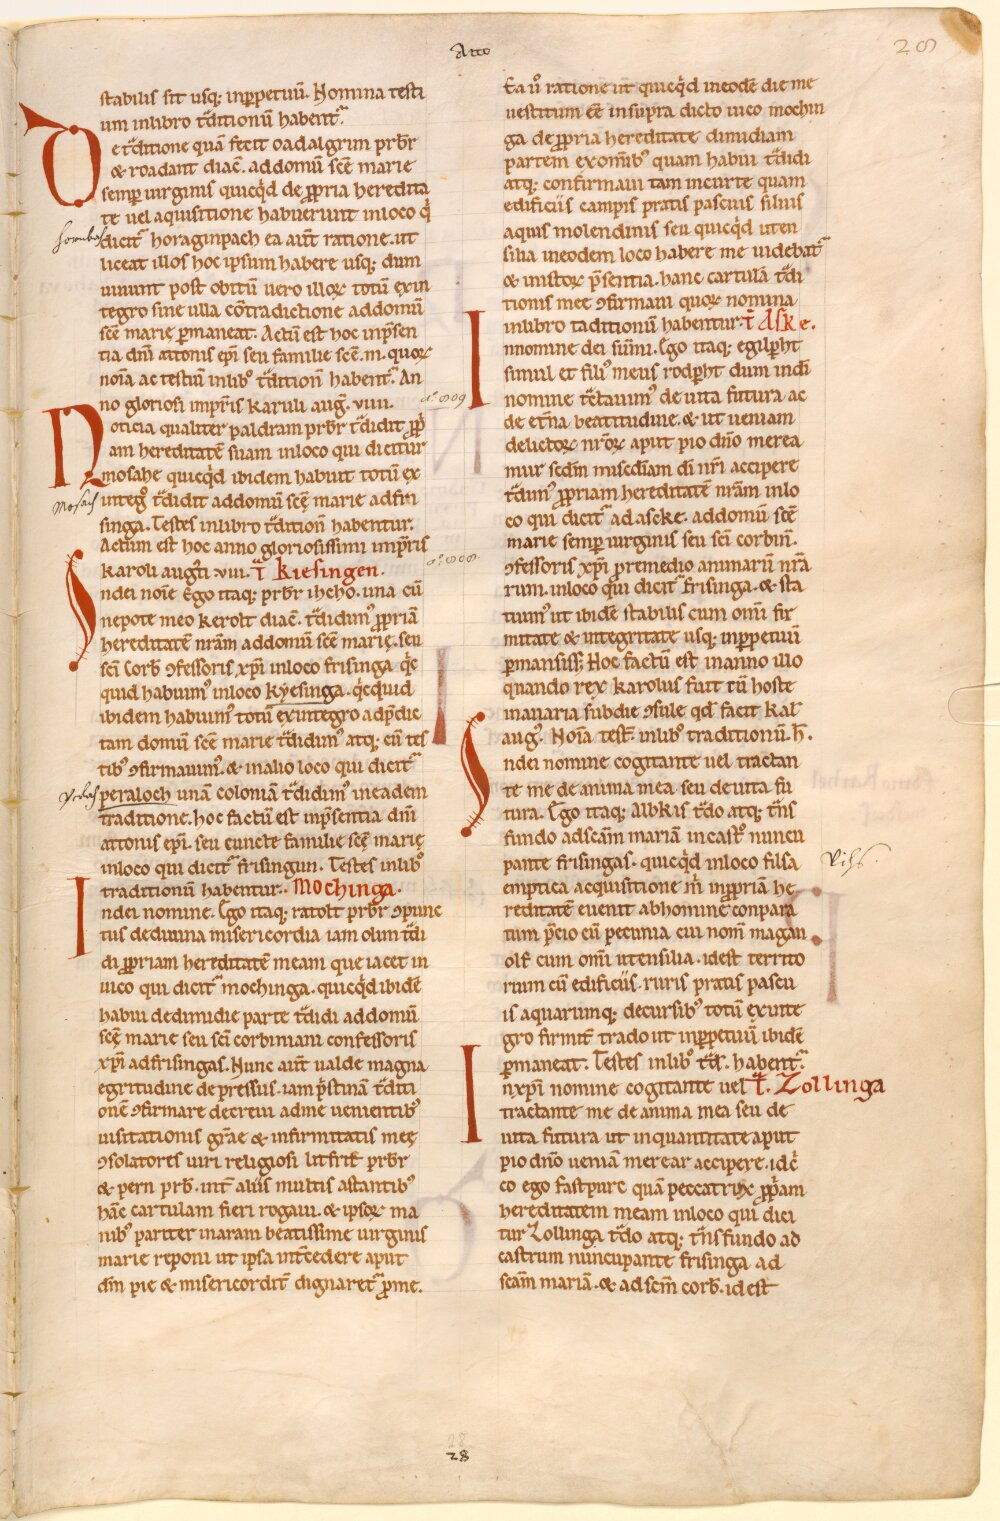 Atto
28
stabilis sit usq; inp̱petuū. Nomina testi
um inlibro t̾ditionū habent᷑.
De t̾ditione quā fecit oadalgrim pr̄br
& roadant diac̄. addomū scē marie
semp̱ uirginis quicq̄d de ꝓpria heredita
te uel aquisitione habuerunt inloco q̄
hornbach
dicit᷑ horaginpach ea aūt ratione. ut
liceat illos hoc ipsum habere usq; dum
uiuunt post obitū uero illoꝝ totū exin
tegro sine ulla cōtradictione addomū
scē marię p̱maneat. Actū est hoc inp̄sen
tia dn̄i attonis ep̄i seu familie scē. m. quoꝝ
noīa ac testiū inlib᷒ t̾dition̄ habent᷑. An
no gloriosi imp̱ris karuli auḡ. viiii.
a° 809
Noticia qualiter paldram pr̄br t̾didit ꝓp̄
am hereditatē suam inloco qui dicitur
mosahe quicq̄d ibidem habuit totū ex
Mosach
integ̊ t̾didit addomū scē marie adfri
singa. Testes inlibro t̾dition̄ habentur.
Actum est hoc anno gloriosissimi imp̱ris
a° 808
karoli auḡti. viii. t̄ Kiesingen.
Indei noīe Ego itaq; pr̄br ihcho. una cū
nepote meo kerolt diac̄. t̾didim᷒ ꝓpriā
hereditatē nr̄am addomū scē marię. seu
scī Corb̄ ꝯfessoris xp̄i inloco frisinga q̄c
quid habuim᷒ inloco kyesinga. q̄cquid
ibidem habuim᷒ totū exintegro adp̄dic
tam domū scē marie t̾didim᷒ atq; cū tes
tib᷒ ꝯfirmauim᷒. & inalio loco qui dicit᷑
peraloch unā coloniā t̾didim᷒ ineadem
traditione. hoc factū est inp̄sentia dn̄i
attonis ep̄i. seu cuncte familie scē marię
inloco qui dicit᷑ frisingun. Testes inlib᷒
traditionū habentur. Mochinga.
Indei nomine. Ego itaq; ratolt pr̄br ꝯpunc
tus dediuina misericordia iam olim t̾di
di ꝓpriam hereditatē meam que iacet in
uico qui dicit᷑ mochinga. quicq̄d ibidē
habui dedimidie parte t̾didi addomū
scē marie seu scī corbiniani confessoris
xp̄i adfrisingas. Nunc aūt ualde magna
egritudine depressus. iam p̄stinā t̾diti
onē ꝯfirmare decreui adme uenientib᷒
uisitationis gr̄ae & infirmitatis meę
ꝯsolatores uiri religiosi litfrit̄ pr̄br
& pern pr̄b. int̄ aliis multis astantib᷒
hāc cartulam fieri rogaui. & ipsoꝝ ma
nib᷒ pariter inaram beatissime uirginis
marie reponi ut ipsa int̄cedere aput
dm̄ pie & misericordit̄ dignaret᷑ ꝓme.
Ea ů ratione ut quicq̄d ineodē die me
uestitum eē insupra dicto uico mochin
ga de ꝓpria hereditate dimidiam
partem exomīb᷒ quam habui t̾didi
atq; confirmaui tam incurte quam
edificiis campis pratis pascuis siluis
aquis molendinis seu quicq̄d uten
silia ineodem loco habere me uidebat᷑
& inistoꝝ p̄sentia. hanc cartulā t̾di
tionis mee ꝯfirmaui quoꝝ nomina
inlibro taditionū habentur. t̄ Aske.
Innomine dei sūmi. Ego itaq; egilpḥt
simul et fili᷒ meus rodpḥt dum indī
nomine t̾ctauim᷒ de uita futura ac
de et̄na beatitudine. & ut ueniam
delictoꝝ nr̄oꝝ aput pio dn̄o merea
mur scd̄m misc̄diam dī nr̄i accipere
t̾dim᷒ ꝓpriam hereditatē nr̄am inlo
co qui dicit᷑ ad ascke. addomū scē
marie semp̱ uirginis seu scī corbin̄.
ꝯfessoris xp̄i premedio animarū nr̄a
rum. inloco qui dicit᷑ frisinga. & sta
tuim᷒ ut ibidē stabilis cum omī fir
mitate & integritate usq; inp̱petuū
p̱mansiss; Hoc factū est inanno illo
quando rex karolus fuit cū hoste
inauaria subdie ꝯsule qd̄ facit kal̄
aug̊. Noīa test̄. inlib᷒ traditionū. h̄.
Indei nomine cogitante uel tractan
te me de anima mea seu de uita fu
tura. Ego itaq; Albkis t̾do atq; t̾ns
fundo adsc̄am mariā incast̊ nuncu
pante frisingas. quicq̄d inloco filsa
Vihs.
emptica acquisitione m̄ inꝓpriā he
reditatē euenit abhominē conpara
tum p̄cio cū pecunia cui nom̄ magan
olt̄ cum omī utensilia. idest territo
rium cū edificiis. ruris pratis pascu
is aquarumq; decursib᷒ totū exinte
gro firmit̄ trado ut inp̱petuū ibidē
p̱maneat. Testes inlib᷒ t̾d̄. habent᷑.
Inxp̄i nomine cogitante uel t̄. Zollinga
tractante me de anima mea seu de
uita futura ut inquantitate aput
pio dn̄o ueniā merear accipere. idc̄
co ego fastpurc quā peccatrix ꝓp̄am
hereditatem meam inloco qui dici
tur Zollinga t̾do atq; t̾nsfundo ad
castrum nuncupante frisinga ad
sc̄am mariā. & ad scm̄ corb̄. id est
28
28